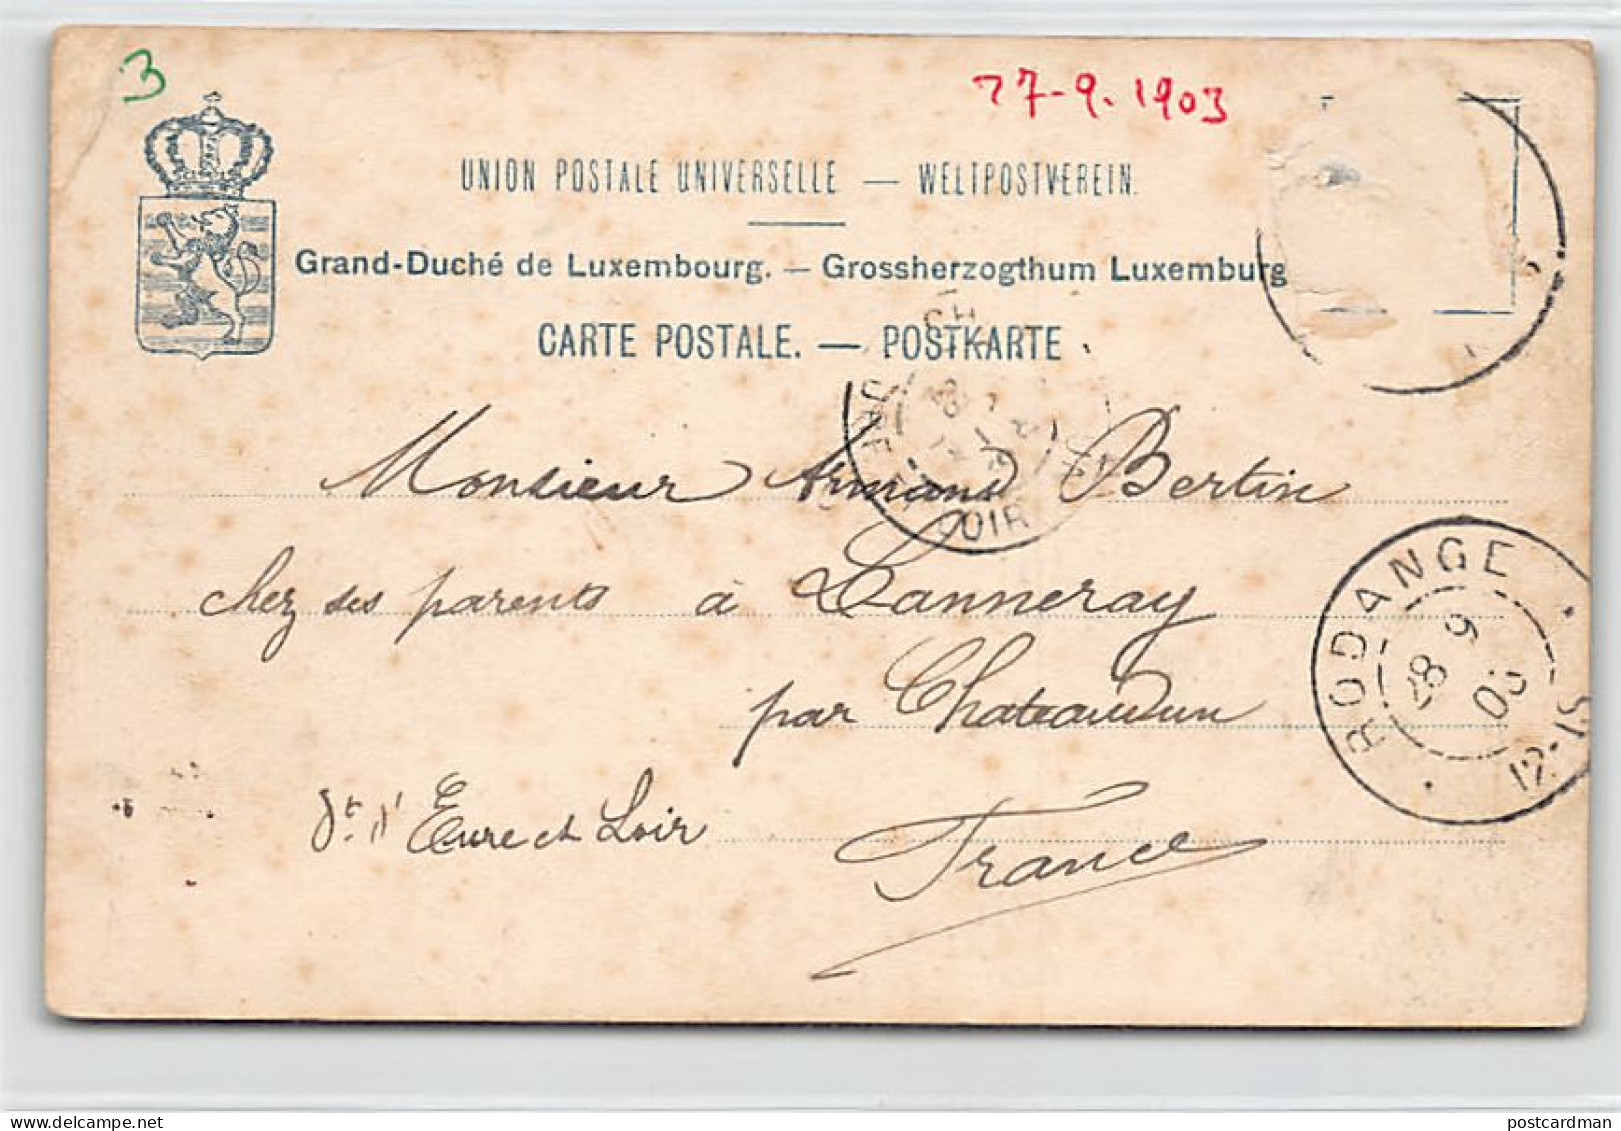 3
27-9.1903
UNION POSTALE UNIVERSELLE — WELTPOSTVEREIN.
Grand-Duché de Luxembourg. — Grossherzogthum Luxemburg
CARTE POSTALE. — POSTKARTE
Monsieur Armand Bertin
chez ses parents à Lanneray
par Chateaudun
Dt d'Eure et Loir
France
EURE ET LOIR
RODANGE
28 9 03
12-
postcardman